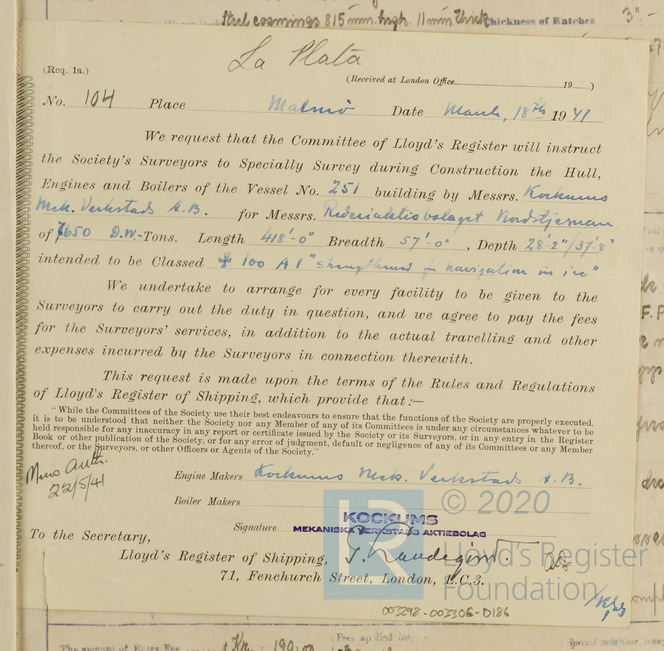 Steel coamings 815 mm. high. 11 mm. thick thickness of Hatches 3"
La Plata
(Req. 1a.)
(Received at London Office 19 )
No. 104 Place Malmö Date March, 18th 1941
We request that the Committee of Lloyd's Register will instruct
the Society's Surveyors to Specially Survey during Construction the Hull,
Engines and Boilers of the Vessel No. 251 building by Messrs. Kockums
Mek. Verkstads A.B. for Messrs. Rederiaktiebolaget Nordstjernan
of 7650 D.W. Tons. Length 418'-0" Breadth 57'-0", Depth 28'-2"/37'-8"
intended to be Classed ✠ 100 A1 "strengthened navigation in ice"
We undertake to arrange for every facility to be given to the
Surveyors to carry out the duty in question, and we agree to pay the fees
for the Surveyors' services, in addition to the actual travelling and other
expenses incurred by the Surveyors in connection therewith.
This request is made upon the terms of the Rules and Regulations
of Lloyd's Register of Shipping, which provide that:—
"While the Committees of the Society use their best endeavours to ensure that the functions of the Society are properly executed,
it is to be understood that neither the Society nor any Member of any of its Committees is under any circumstances whatever to be
held responsible for any inaccuracy in any report or certificate issued by the Society or its Surveyors, or in any entry in the Register
Book or other publication of the Society, or for any error of judgment, default or negligence of any of its Committees or any Member
thereof, or the Surveyors, or other Officers or Agents of the Society."
22/5/41
Engine Makers Kockums Mek. Verkstads A.B.
Boiler Makers
© 2020
Lloyd's Register
Foundation
KOCKUMS
Signature MEKANISKA VERKSTADS AKTIEBOLAG
To the Secretary,
Lloyd's Register of Shipping,
71, Fenchurch Street, London, E.C.3.
003298-003306-0186